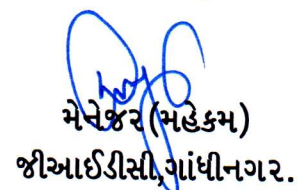 મેનેજર(મહેકમ)
જીઆઈડીસી,ગાંધીનગર.